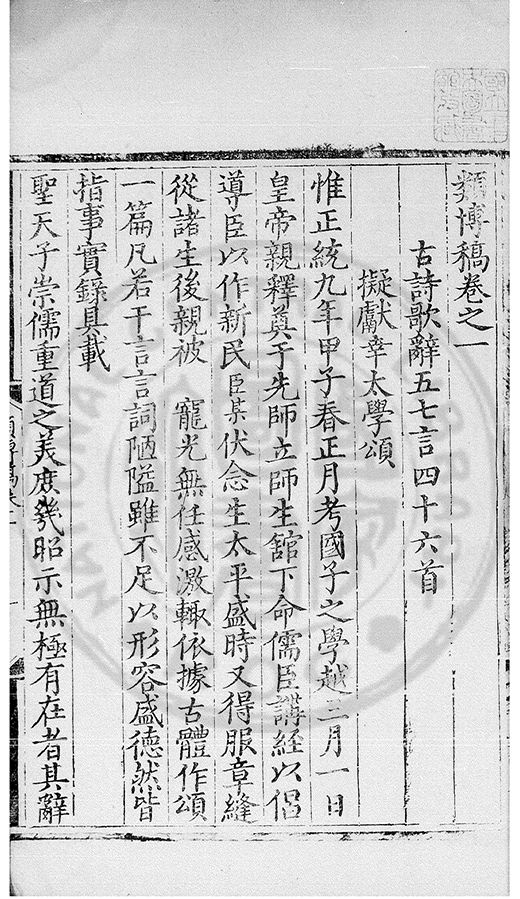 類博稿卷之一
古詩歌辭五七言四十六首
擬獻幸太學頌
惟正統九年甲子春正月考國子之學越三月一日
皇帝親釋奠于先師立師生舘下命儒臣講經以侶
導臣以作新民臣某伏念生太平盛時又得服章縫
從諸生後親被 寵光無任感激輙依據古體作頌
一篇凡若干言言詞陋隘雖不足以形容盛德然皆
指事實錄具載
聖天子崇儒重道之美庶幾昭示無極有在者其辭